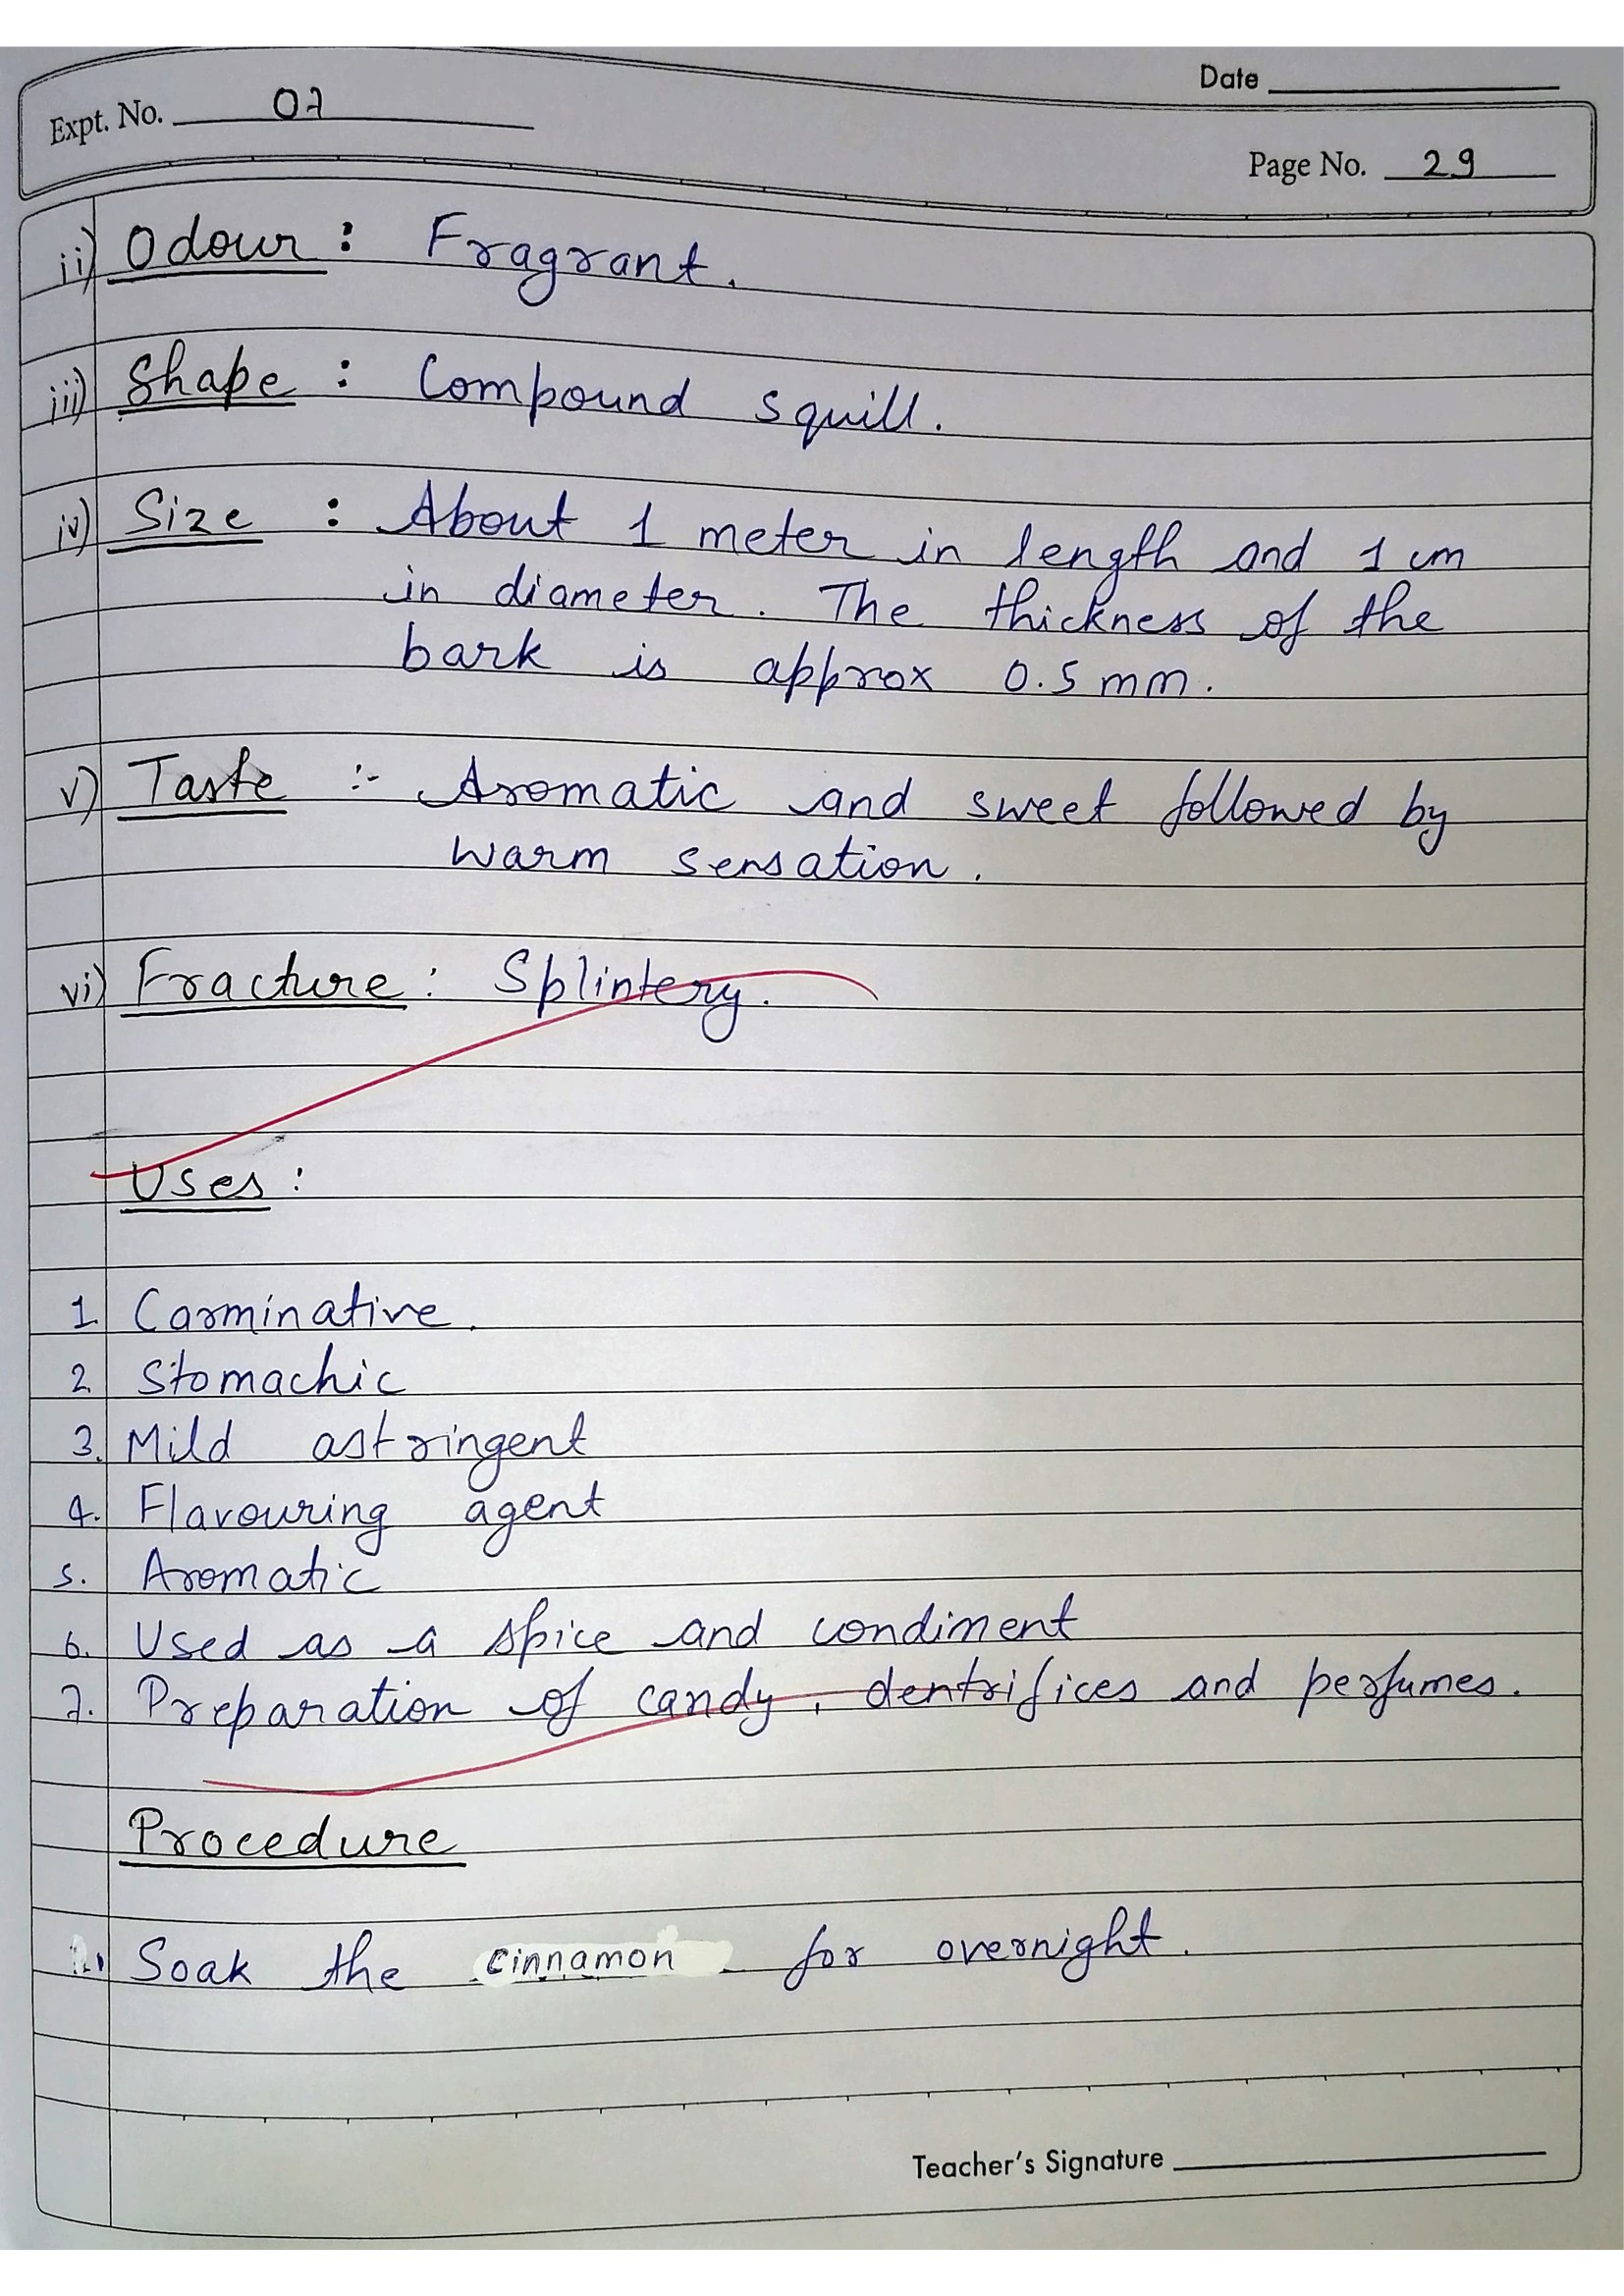 Date
Expt. No. 07
Page No. 29
ii) Odour : Fragrant.
iii) Shape : Compound squill.
iv) Size : About 1 meter in length and 1 cm
in diameter. The thickness of the
bark is approx 0.5 mm.
v) Taste :- Aromatic and sweet followed by
warm sensation.
vi) Fracture : Splintery.
Uses :
1. Carminative.
2. Stomachic
3. Mild astringent
4. Flavouring agent
5. Aromatic
6. Used as a spice and condiment
7. Preparation of candy, dentrifices and perfumes.
Procedure
Soak the cinnamon for overnight.
Teacher's Signature